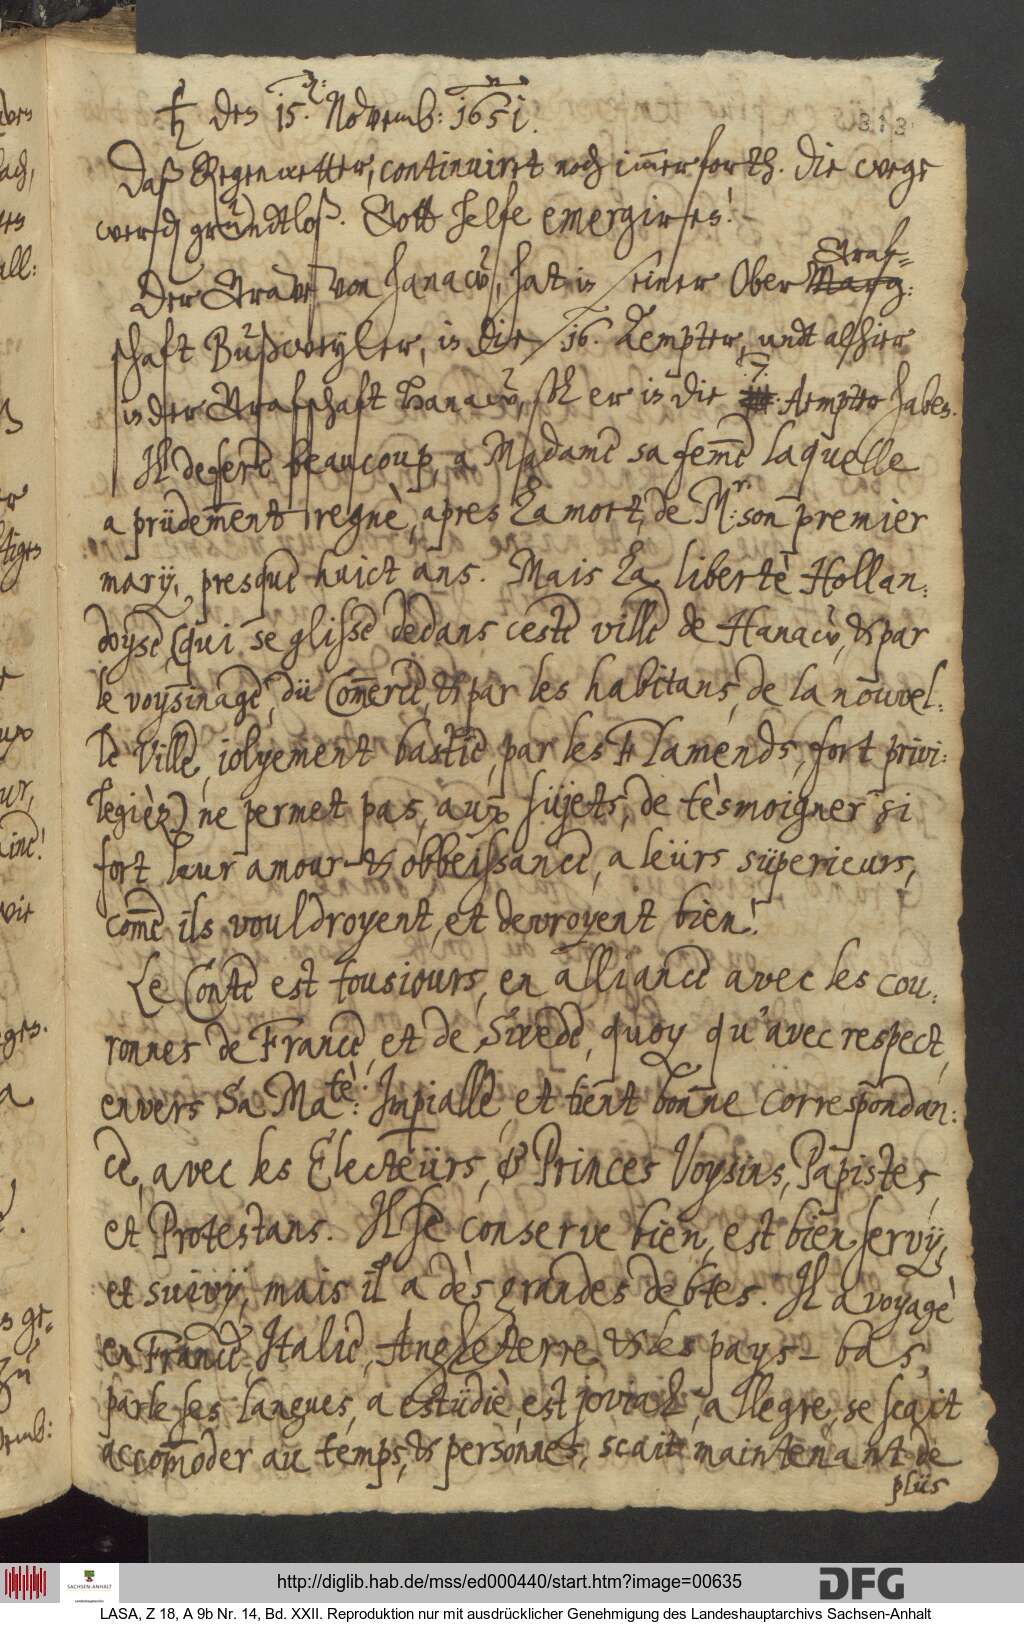 ♄ den 15. Novemb: 1651.
313.
Daß Regenwetter, continuiret noch im̄er forth. Die wege
werden grundtloß. Gott helfe emergiren!
Der Grave von Hanaw, hat in seiner Ober Marg: Graf-
schaft Bußweyler, in die 16. Aempter, undt alhier
in der Grafschaft Hanaw, soll er in die 7. Aempter haben.
Il defere beaucoup, a Madame sa fem̄e laquelle
a prüdem̄ent regnè, apres la mort, de Mr: son premier
mary, presque huict ans. Mais la libertè Hollan:
doyse, (qui se glisse dedans ceste ville de Hanaw, & par
le voysinage, dü Com̄erce, & par les habitans, de la nouvel:
le Ville, jolyement bastie, par les Flamends, fort privi:
legièz) ne permet pas, aux süjets, de tèsmoigner si
fort leur amour & obbeissance, a leürs süperieurs,
com̄e ils vouldroyent, et devroyent bien!
Le Conte est tousiours, en alliance avec les cou:
ronnes de France, et de Svede, quoy qu'avec respect,
envers Sa Matè: Imp̄ialle, et tient bonne correspondan:
ce, avec les Electeürs, & Princes Voysins, Papistes,
et Protestans. Il se conserve bien, est bien servÿ,
et suivÿ, mais il a dès grandes debtes. Il a voyagè
en France, Italie, Angleterre, & les pays-bas,
parle ses langues, a estüdiè, est jovial, allegre, se scait
accom̄oder au temps, & personnes, scait maintenant de
plüs
http://diglib.hab.de/mss/ed000440/start.htm?image=00635
SACHSEN-ANHALT
DFG
LASA, Z 18, A 9b Nr. 14, Bd. XXII. Reproduktion nur mit ausdrücklicher Genehmigung des Landeshauptarchivs Sachsen-Anhalt